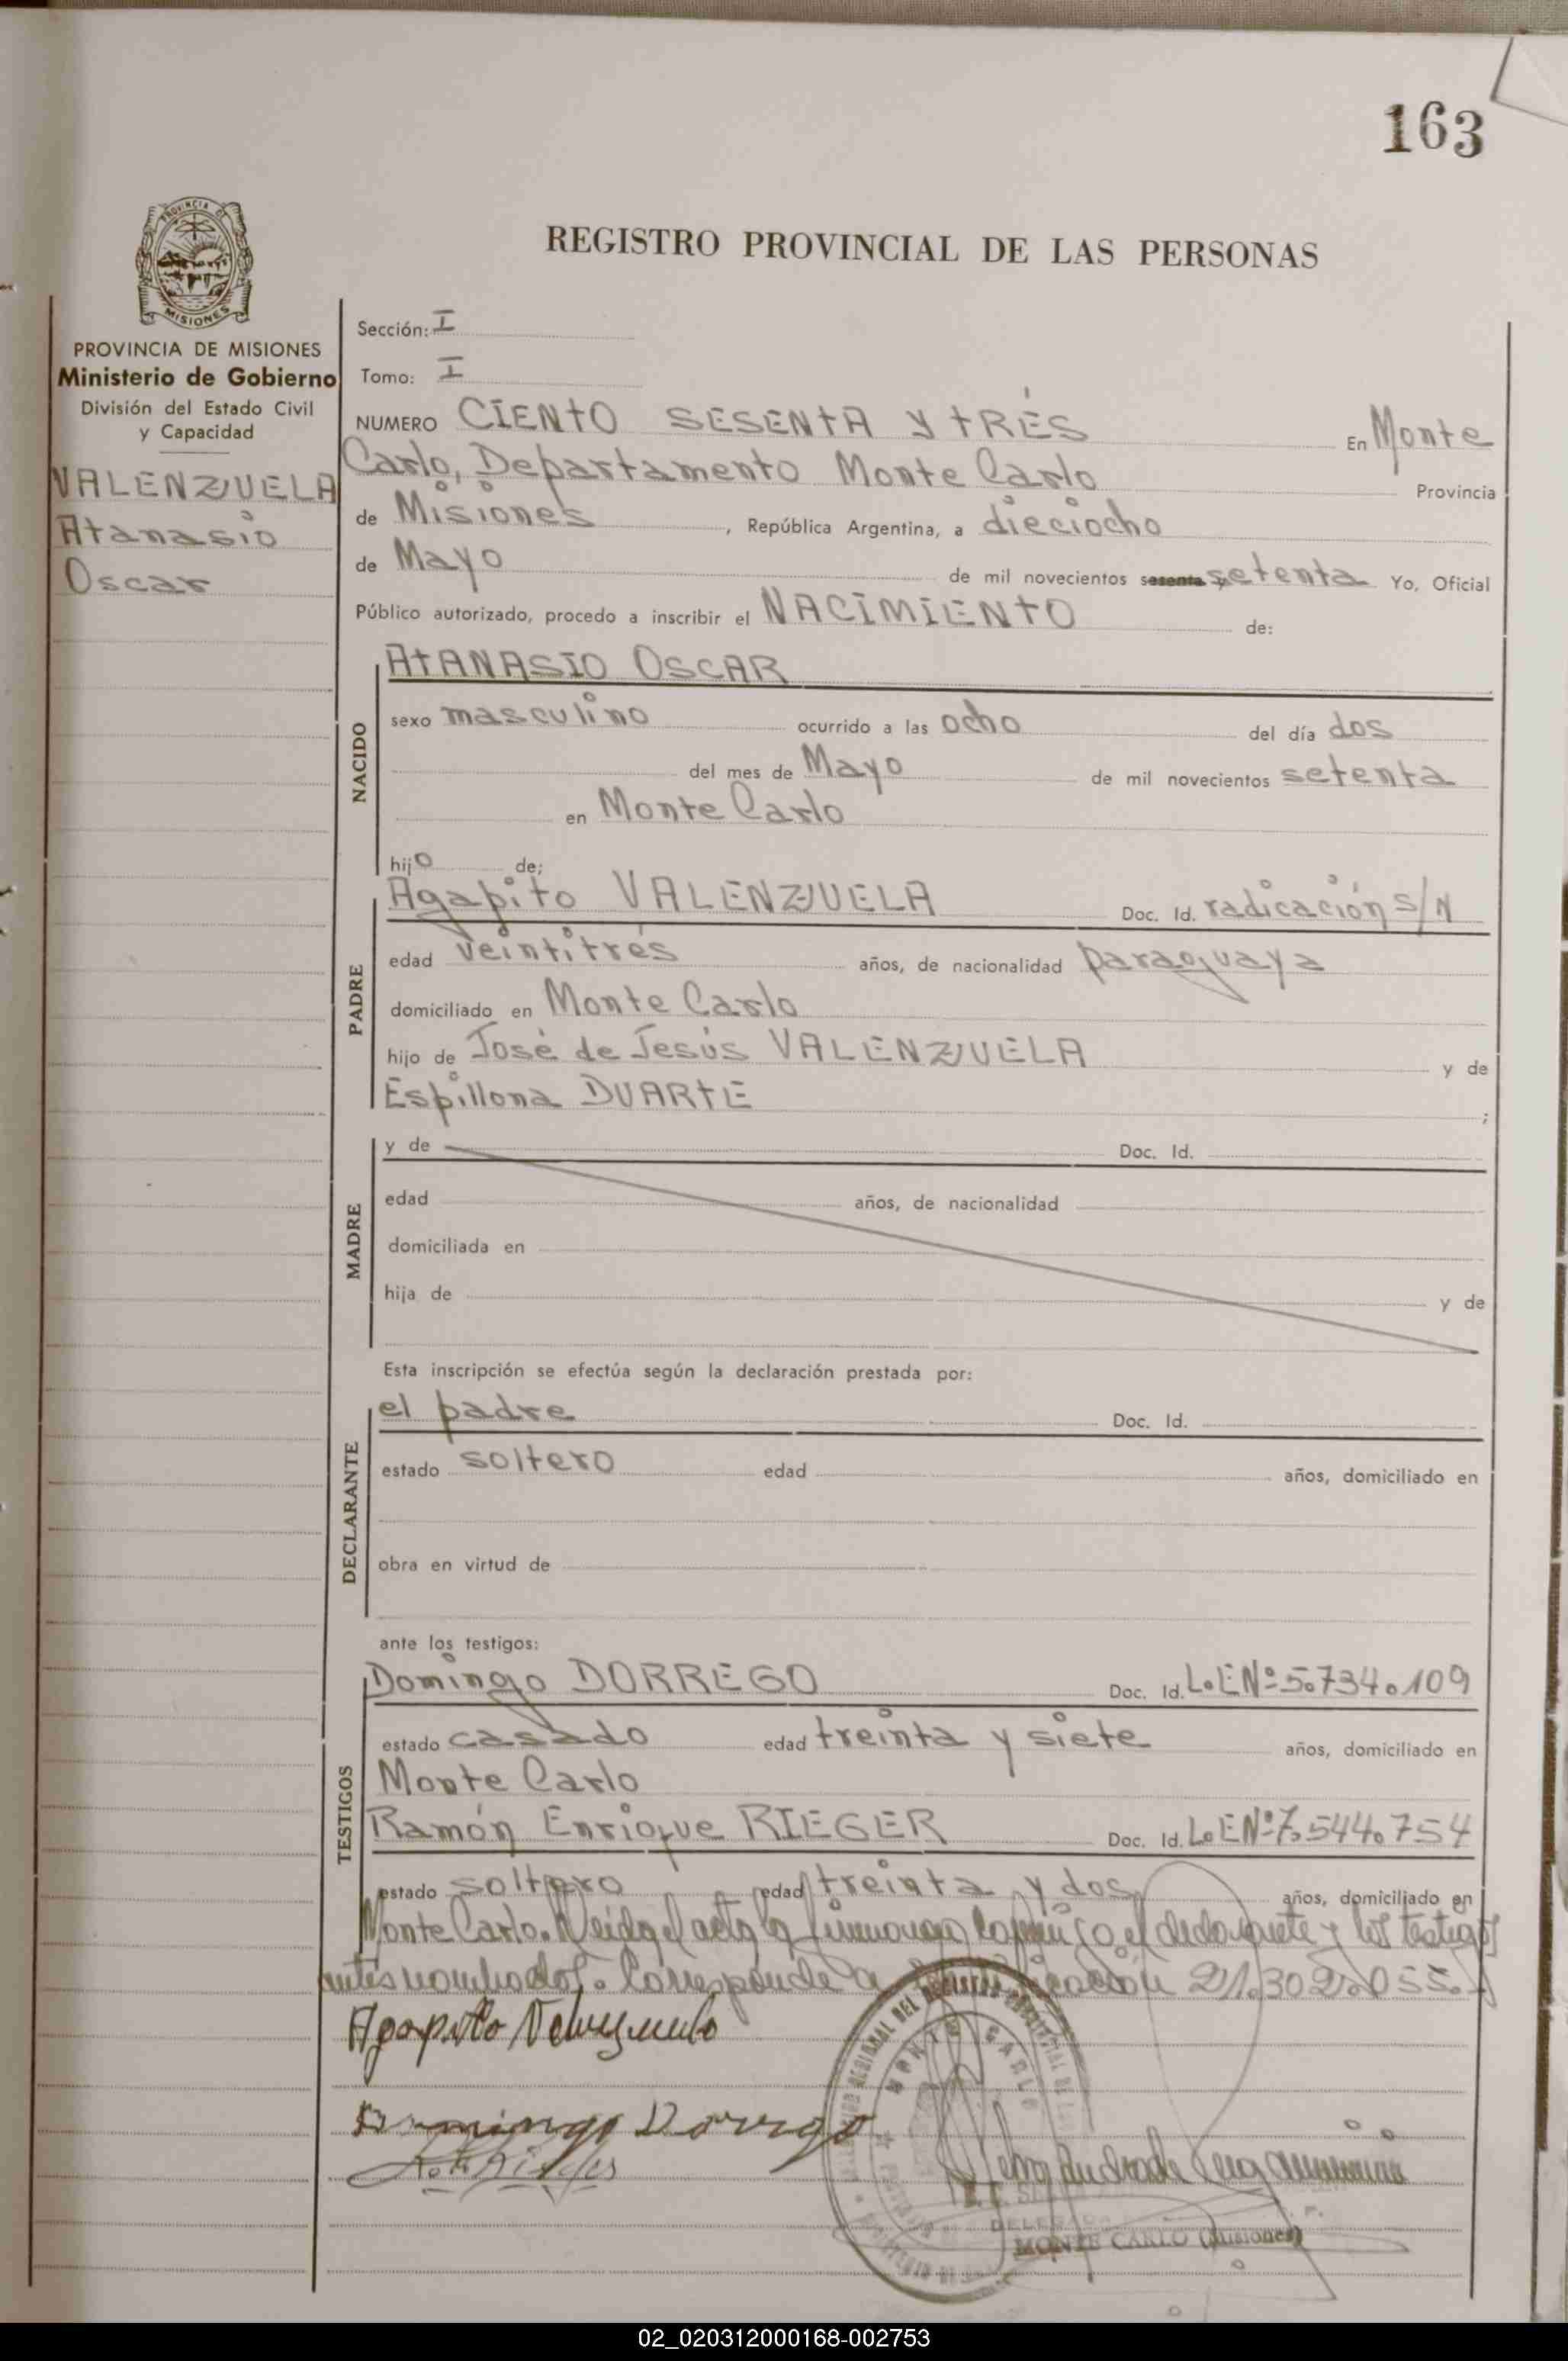 163
PROVINCIA DE
MISIONES
REGISTRO PROVINCIAL DE LAS PERSONAS
PROVINCIA DE MISIONES
Ministerio de Gobierno
División del Estado Civil
y Capacidad
VALENZUELA
Atanasio
Oscar
Sección: I
Tomo: I
NUMERO CIENTO SESENTA Y TRÉS En Monte
Carlo, Departamento Monte Carlo Provincia
de Misiones, República Argentina, a dieciocho
de Mayo de mil novecientos sesenta setenta Yo, Oficial
Público autorizado, procedo a inscribir el NACIMIENTO de:
NACIDO
ATANASIO OSCAR
sexo masculino ocurrido a las ocho del día dos
del mes de Mayo de mil novecientos setenta
en Monte Carlo
hijo de:
PADRE
Agapito VALENZUELA Doc. Id. radicación S/N
edad veintitrés años, de nacionalidad paraguaya
domiciliado en Monte Carlo
hijo de José de Jesús VALENZUELA y de
Espillona DUARTE ;
MADRE
y de Doc. Id.
edad años, de nacionalidad
domiciliada en
hija de y de
Esta inscripción se efectúa según la declaración prestada por:
DECLARANTE
el padre Doc. Id.
estado soltero edad años, domiciliado en
obra en virtud de
ante los testigos:
TESTIGOS
Domingo DORREGO Doc. Id. L.E.Nº 5.734.109
estado casado edad treinta y siete años, domiciliado en
Monte Carlo
Ramón Enrique RIEGER Doc. Id. L.E.Nº 7.544.754
estado soltero edad treinta y dos años, domiciliado en
Monte Carlo. Leída el acta la firman conmigo el declarante y los testigos
antes nombrados. Corresponde a 21.302.055.-
Agapito Valenzuela
Domingo Dorrego
MONTE CARLO
MONTE CARLO (Misiones)
02_020312000168-002753